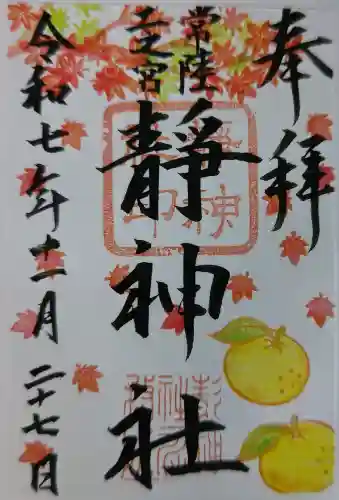 奉拝
常陸
二之宮
靜神社
令和七年十一月二十七日